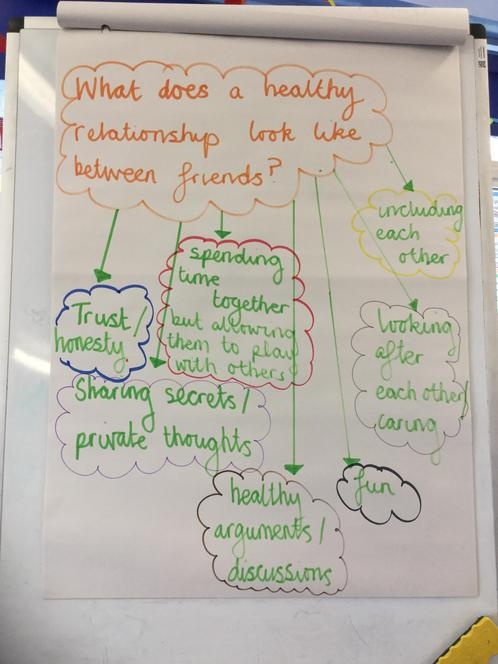 What does a healthy
relationship look like
between friends?
including
each
other
spending
time
together
but allowing
them to play
with others
Trust/
honesty
looking
after
each other/
caring
Sharing secrets/
private thoughts
fun
healthy
arguments/
discussions